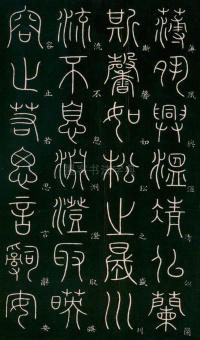 薄夙興溫凊似蘭
斯馨如松之盛川
流不息淵澄取暎
容止若思言辭安